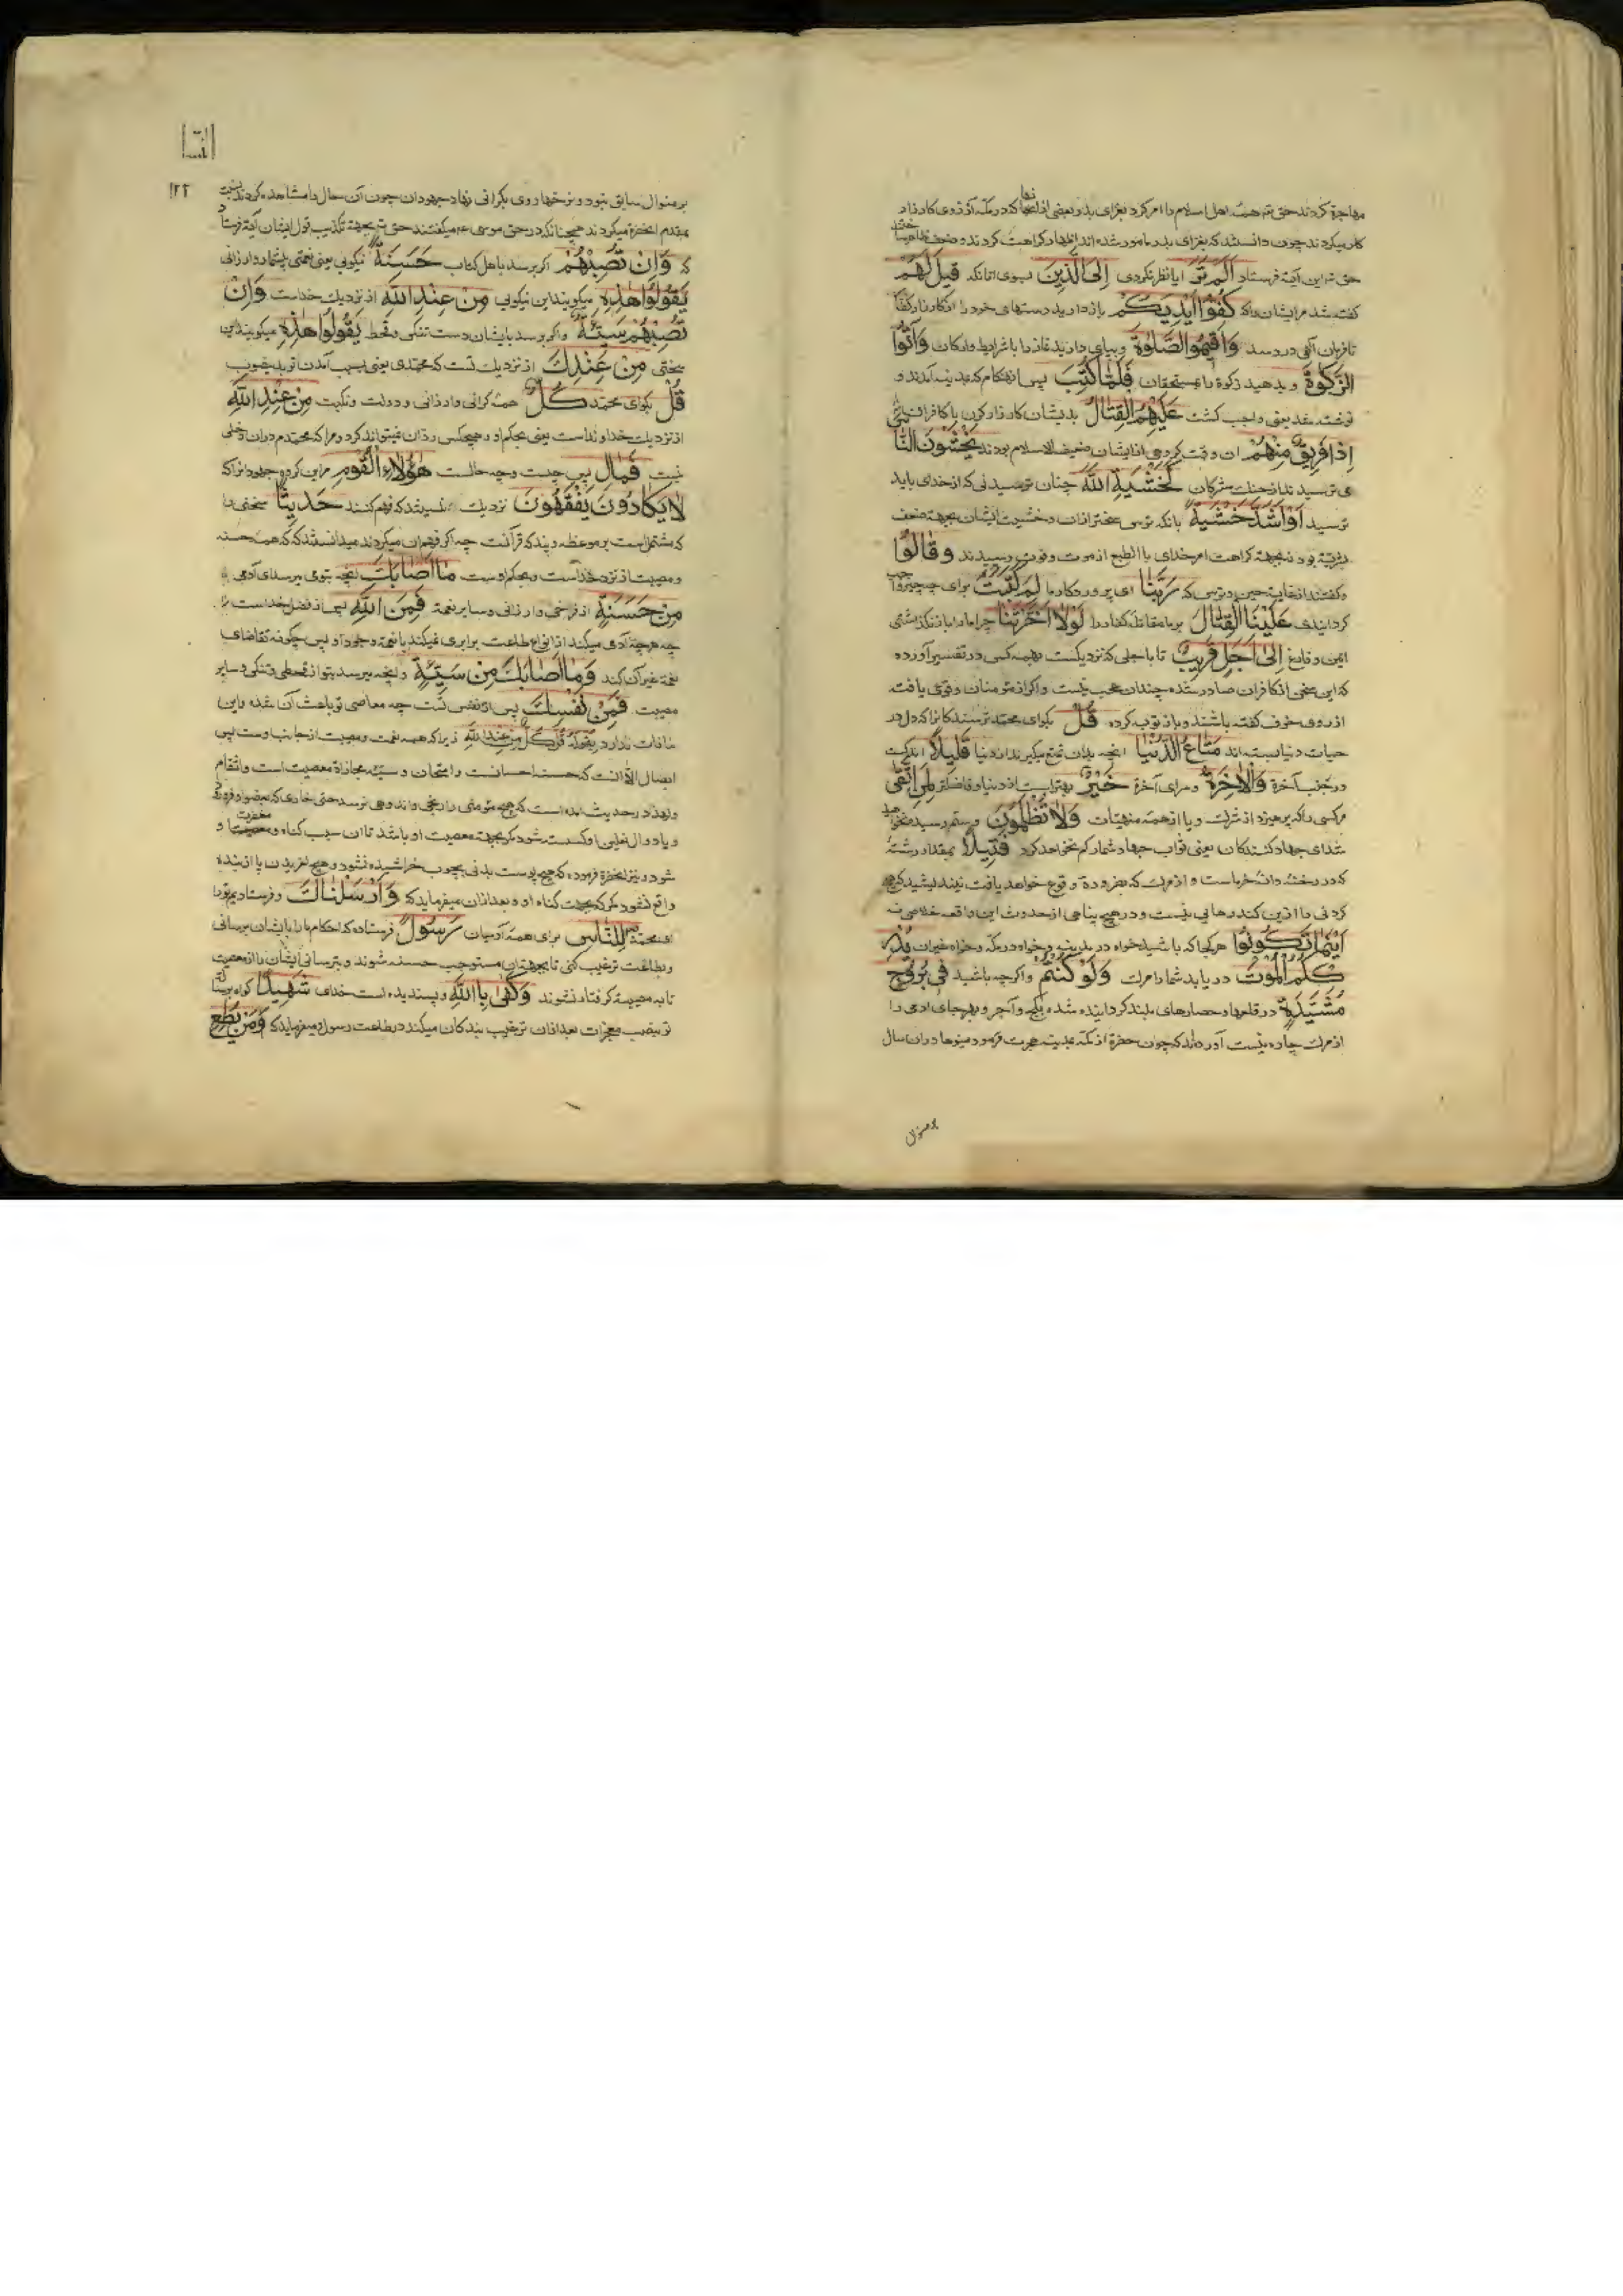 مهاجرة کردند حق تع همه اهل اسلام را امر کرد بغزای بدر و بعضی از آنها که در مکه آرزوی کارزار
کار میکردند چون دانستند که بغزای بدر مامور شده اند اظهار کراهت کردند و
حق تع این آیة فرستاد اَلَمْ تَرَ ایا نظر نکردی اِلَی الَّذینَ بسوی انانکه قیلَ لَهُمْ
کفته شد مر ایشان را که کُفُّوا اَیْدِیَکُمْ باز دارید دستهای خود را از کارزار کفار
تا فرمان الهی در رسد وَاَقیمُوا الصَّلوٰةَ وبپای دارید نماز را با شرایط وارکان وَآتُوا
الزَّکوٰةَ و بدهید زکوة را بمستحقان فَلَمّا کُتِبَ پس ان هنکام که بمدینه آمدند و
نوشته شد یعنی واجب کشت عَلَیْهِمُ الْقِتالُ بدیشان کارزار کردن با کافران
اِذا فَریقٌ مِنْهُمْ ان وقت کروهی از ایشان ضعیف الاسلام بودند یَخْشَوْنَ النّا
می ترسیدند از جنك مشرکان کَخَشْیَةِ اللّٰهِ چنان ترسیدنی که از خدای باید
ترسید اَوْ اَشَدَّ خَشْیَةً بانکه ترسی سختر از ان و خشیت ایشان بجهة ضعف
بشریة بود نه بجهة کراهت امر خدای با الطبع از موت و فوت رسیدند وَقالُوا
و کفتند از غایت جبن و ترسی که رَبَّنا ای پروردکار ما لِمَ کَتَبْتَ برای چه چیز واجب
کردانیدی عَلَیْنَا الْقِتالَ بر ما مقاتله کفار را لَوْلا اَخَّرْتَنا چرا ما را باز نکذاشتی
ایمن و فارغ اِلٰی اَجَلٍ قَریبٍ تا باجلی که نزدیکست بهمه کس در تفسیر آورده
که این سخن از کافران صادر شده چندان عجب نیست و اکر از مومنان وقوع یافت
از روی خوف کفته باشند و باز توبه کرده قُلْ بکوای محمد ترسندکانرا که دل در
حیات دنیا بسته اند مَتاعُ الدُّنْیا انچه بدان تمتع میکیرند از دنیا قَلیلٌ اندکست
در جنب آخرة وَالْآخِرَةُ وسرای آخرة خَیْرٌ بهتر است از دنیا و فاضلتر لِمَنِ اتَّقیٰ
مر کسی را که بپرهیزد از شرك و یا از همه منهیات وَلا تُظْلَمُونَ و ستم رسیده نخواهید
شد ای جهاد کنندکان یعنی ثواب جهاد شما را کم نخواهد کرد فَتیلاً بمقدار رشتهٔ
که در رخنه دانه خرماست و از مرك که مقرر وده و وقوع خواهد یافت نیندیشید که هیچ
کردنی را ازین کند رهائی نیست و در هیچ پناهی از حدوث این واقعه خلاصی نه
اَیْنَما تَکُونُوا هر کجا که باشید خواه در مدینه و خواه در مکه و خواه غیر ان یُدْرِ
کْکُمُ الْمَوْتُ در یابد شما را مرك وَلَوْ کُنْتُمْ و اکر چه باشید فی بُرُوجٍ
مُشَیَّدَةٍ در قلعها و حصارهای بلند کردانیده شده بکچ و آجر و بهر جای ادمی را
از مرك چاره نیست آورده اند که چون حضرة از مکه بمدینه هجرت فرمود میوها در ان سال
بر منوال
النساء
۱۲۲
بر منوال سابق نبود و نرخها روی بکرانی نهاد جهودان چون آن حال را مشاهده کردند نسبت
بمقدم انحضرة میکردند همچنانکه در حق موسی ع میکفتند حق تع بجهة تکذیب قول ایشان آیة فرستاد
که وَاِنْ تُصِبْهُمْ اکر برسد باهل کتاب حَسَنَةٌ نیکویی یعنی نعمتی بیشمار و ارزانی
یَقُولُوا هٰذِهِ میکویند این نیکویی مِنْ عِنْدِ اللّٰهِ از نزدیك خداست وَاِنْ
تُصِبْهُمْ سَیِّئَةٌ و اکر برسد بایشان دست تنکی و قحط یَقُولُوا هٰذِهِ میکویند این
سختی مِنْ عِنْدِكَ از نزدیك تست که محمدی یعنی بسبب آمدن تو بدین صوب
قُلْ بکوای محمد کُلٌّ همه کرانی و ارزانی و دولت و نکبت مِنْ عِنْدِ اللّٰهِ
از نزدیك خداوند است یعنی بحکم او و هیچکس رد ان نمیتواند کرد و مرا که محمدم در ان دخلی
نیست فَمالِ پس چیست و چه حالست هٰؤُلاءِ الْقَوْمِ مر این کروه جهودانرا که
لا یَکادُونَ یَفْقَهُونَ نزدیك نمیشند که فهم کنند حَدیثاً سخنی را
که مشتمل است بر موعظه و پند که قرآنست چه اکر فهم ان میکردند میدانستند که همه حسنه
و مصیبت از نزد خداست و بحکم اوست ما اَصابَكَ انچه بتو می رسد ای آدمی
مِنْ حَسَنَةٍ از فراخی و ارزانی و سایر نعمة فَمِنَ اللّٰهِ پس از فضل خداست
چه هر چه آدمی میکند از انواع طاعت برابری نمیکند با نعمة وجود او پس چکونه تقاضای
نعمة غیر آن کند وَما اَصابَكَ مِنْ سَیِّئَةٍ و انچه میرسد بتو از قحطی و تنکی و سایر
مصیبت فَمِنْ نَفْسِكَ پس از نفس تست چه معاصی تو باعث آن شده و این
منافات ندارد بقوله قُلْ کُلٌّ مِنْ عِنْدِ اللّٰهِ زیرا که همه نعمت و مصیبت از جانب اوست پس
ایصال الا انست که حسنه احسانست و امتحان و سیئه مجازاة معصیت است و انتقام
و لهذا در حدیث امده است که هیچ مومنی را رنجی و اندوهی نرسد حتی خاری که بعضو او فرو رود
و یا دوال نعلین او کسسته شود مکر بجهة معصیت او باشد تا ان سبب کفاره و مغفرت
شود و نیز انحضرة فرموده که هیچ پوست بدنی بچوب خراشیده نشود و هیچ لغزیدن پا از بنده
واقع نشود مکر که بجهت کناه او و بعد از ان میفرماید که وَاَرْسَلْناكَ و فرستادیم تو را
ای محمد لِلنّاسِ برای همه آدمیان رَسُولاً فرستاده که احکام ما را بایشان برسانی
و بطاعت ترغیب کنی تا بجهة ان مستوجب حسنه شوند و بترسانی ایشان را از معصیت
تا به مصیبة کرفتار نشوند وَکَفیٰ بِاللّٰهِ و پسندیده است خدای شَهیداً کواه برسالت
تو بنصب معجزات بعد از ان ترغیب بندکان میکند در بطاعت رسول و میفرماید که وَمَنْ یُطِعِ